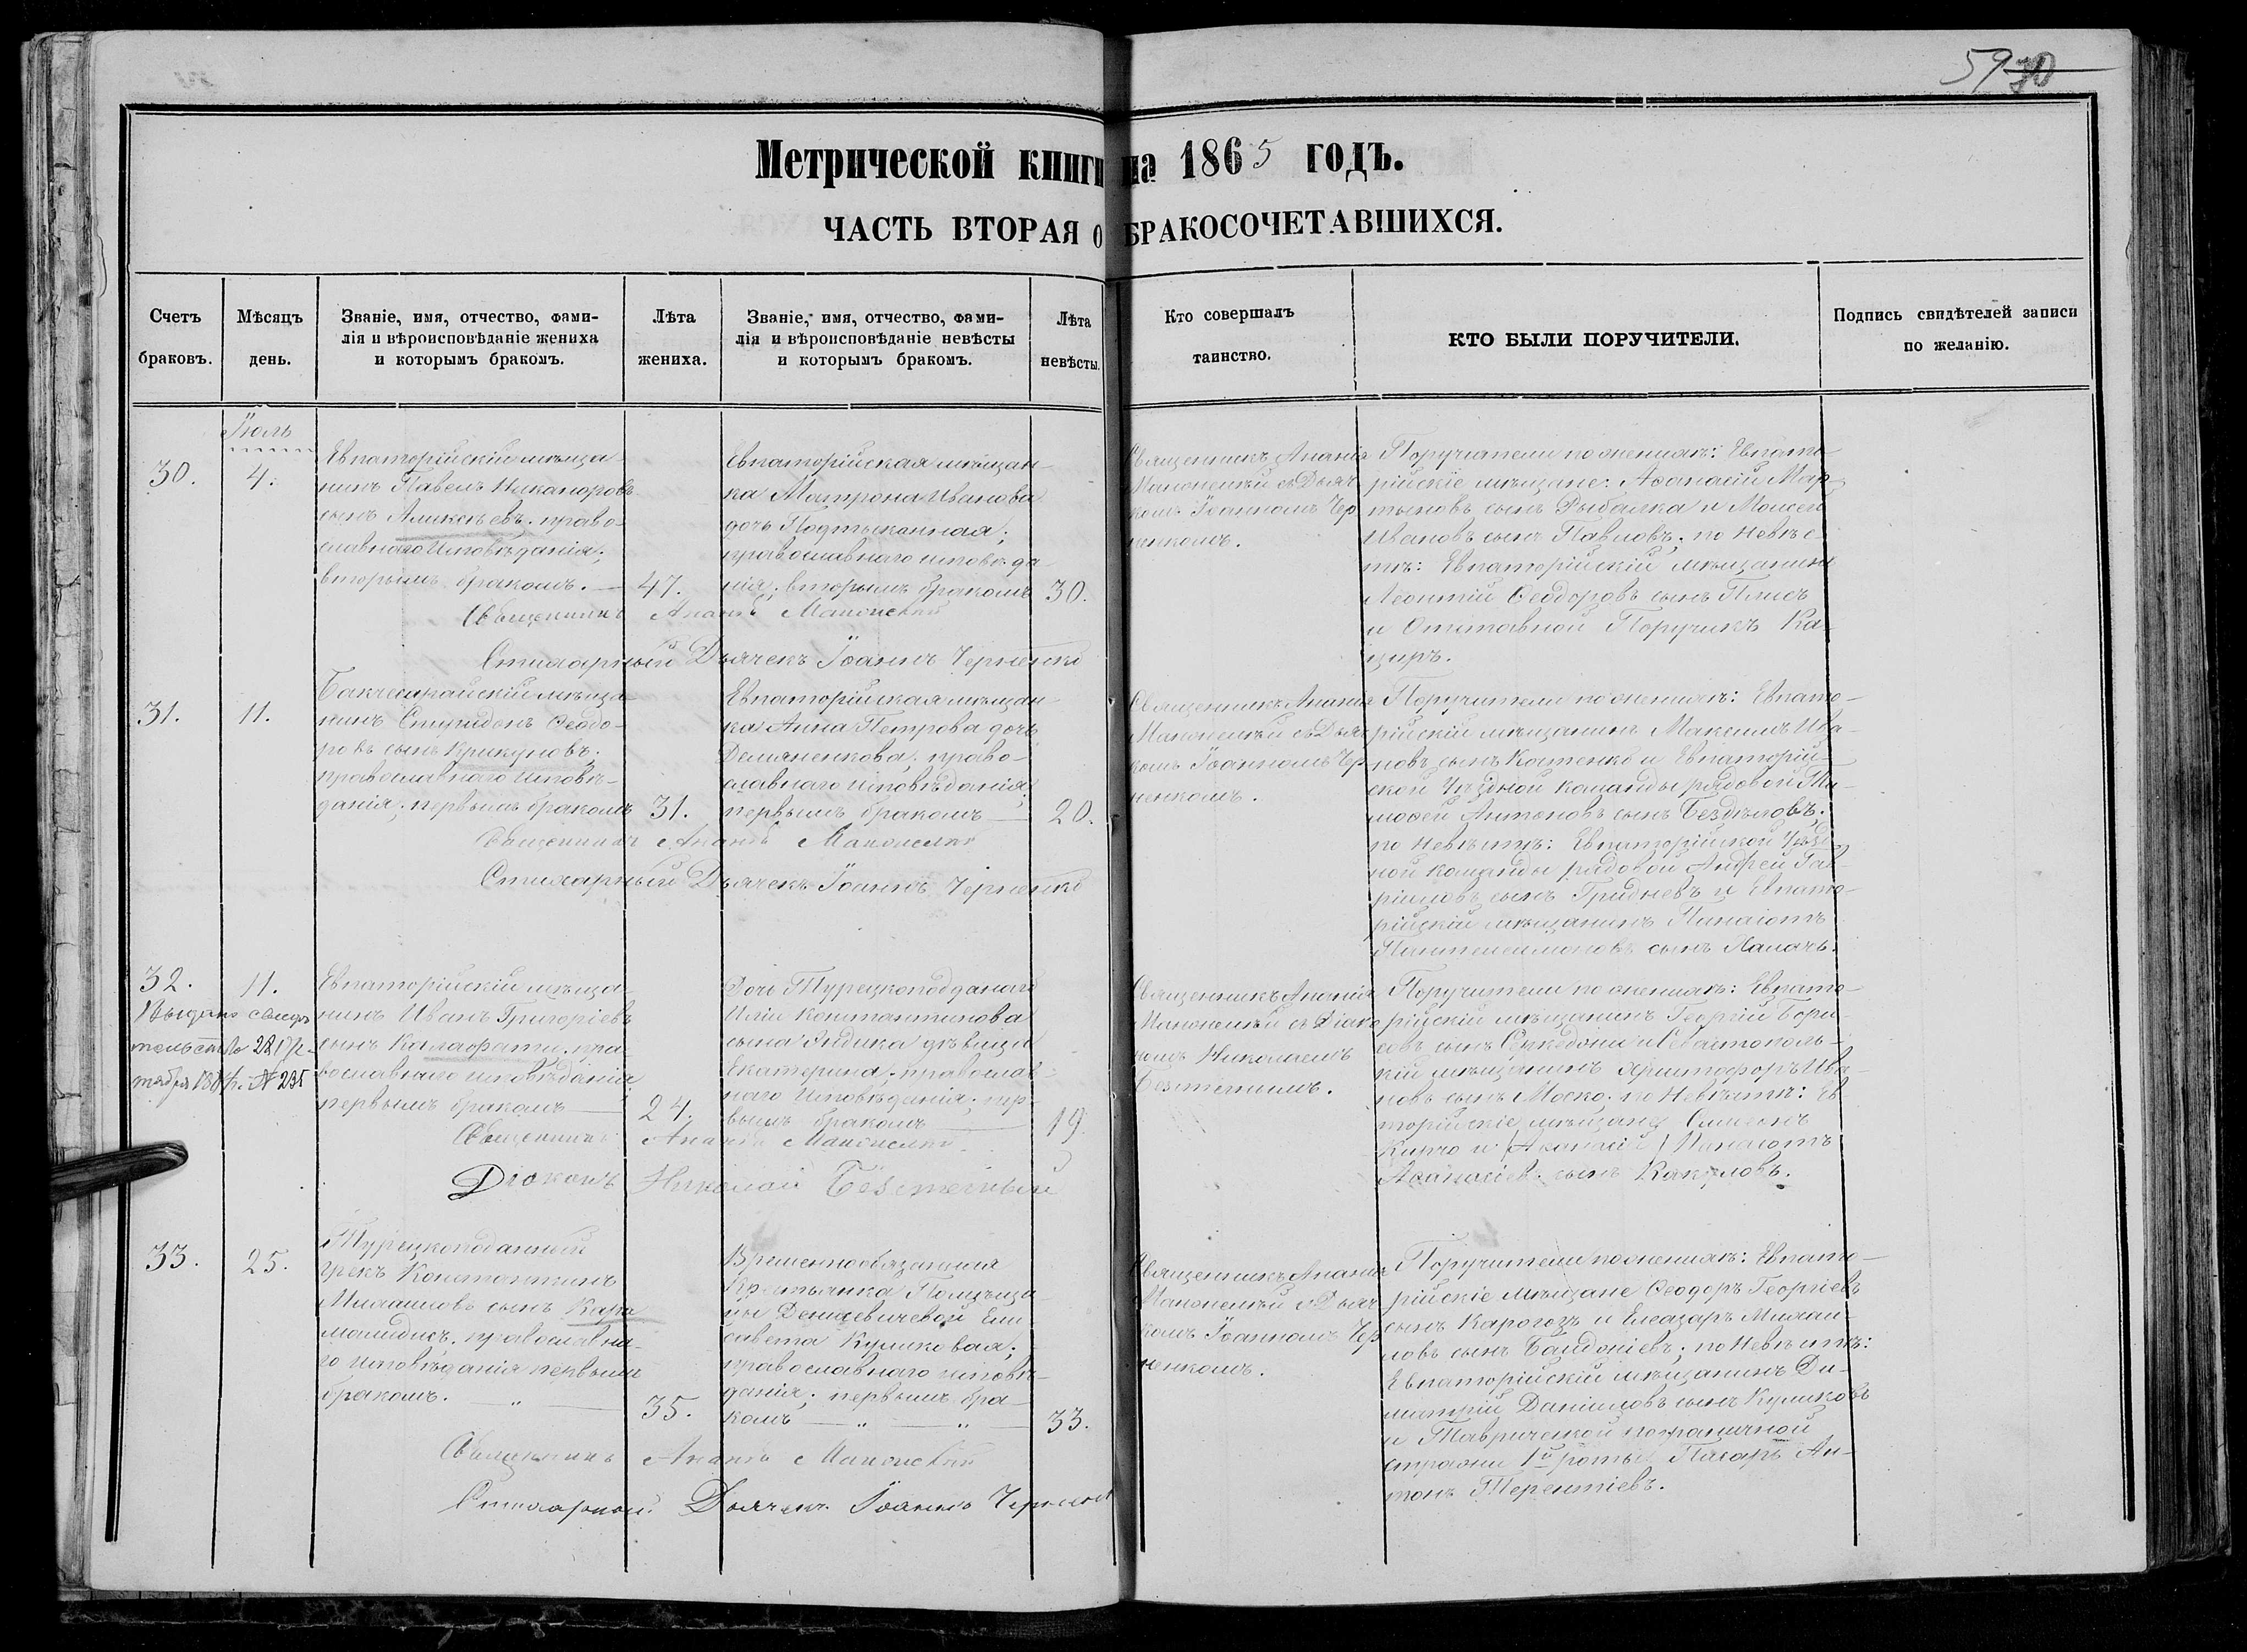 59 70
Метрической книги на 1865 годъ.
ЧАСТЬ ВТОРАЯ О БРАКОСОЧЕТАВШИХСЯ.
Счетъ браковъ.
Мѣсяцъ день.
Званіе, имя, отчество, фами-
лія и вѣроисповѣданіе жениха
и которымъ бракомъ.
Лѣта
жениха.
Званіе, имя, отчество, фами-
лія и вѣроисповѣданіе невѣсты
и которымъ бракомъ.
Лѣта
невѣсты.
Кто совершалъ
таинство.
КТО БЫЛИ ПОРУЧИТЕЛИ.
Подпись свидѣтелей записи
по желанію.
Іюль
30.
4.
Евпаторійскій мѣща-
нинъ Павелъ Никаноровъ
сынъ Аликсѣевъ. право-
славнаго исповѣданія;
вторымъ бракомъ. —
47.
Евпаторійская мѣщан-
ка Матрона Иванова
дочь Подтыканная;
православнаго исповѣда-
нія; вторымъ бракомъ
30.
Священникъ Ананій
Дьяч-
комъ Іоанномъ Чер-
ненкомъ.
Поручители по женихѣ: Евпато-
рійскіе мѣщане: Аѳанасій Мар-
тыновъ сынъ Рыбалка и Моисей
Ивановъ сынъ Павловъ; по Невѣс-
тѣ: Евпаторійскій мѣщанинъ
Леонтій Ѳеодоровъ сынъ
и Отставной Поручикъ Ка-
циръ.
Священникъ Ананій
Стихарный Дьячекъ Іоаннъ Черненко
31.
11.
Бакчесарайскій мѣща-
нинъ Спиридонъ Ѳеодо-
ровъ сынъ Крикуновъ;
православнаго исповѣ-
данія; первымъ бракомъ
31.
Евпаторійская мѣщан-
ка Анна Петрова дочь
Демяненкова; право-
славнаго исповѣданія;
первымъ бракомъ —
20.
Священникъ Ананій
Дьяч-
комъ Іоанномъ Чер-
ненкомъ.
Поручители по женихѣ: Евпато-
рійскій мѣщанинъ Максимъ Ива-
новъ сынъ Катенко и Евпаторій-
ской Уѣздной команды рядовой Ти-
моѳей Антоновъ сынъ Бездѣловъ;
по Невѣстѣ: Евпаторійской Уѣзд-
ной команды рядовой Андрей Гав-
риловъ сынъ Гридневъ и Евпато-
рійскій мѣщанинъ Панаіотъ
Пантелеимоновъ сынъ
Священникъ Ананій
Стихарный Дьячекъ Іоаннъ Черненко
32.
11.
Выдано свидѣ-
тельство
№ 235
Евпаторійскій мѣща-
нинъ Иванъ Григоріевъ
сынъ Калафати. пра-
вославнаго исповѣданія
первымъ бракомъ —
24.
Дочь Турецкоподданаго
Иліи Константинова
сына дѣвица
Екатерина; православ-
наго исповѣданія; пер-
вымъ бракомъ —
19.
Священникъ Ананій
Діако-
номъ Николаемъ
Безтетимъ.
Поручители по женихѣ: Евпато-
рійскій мѣщанинъ Георгій Бори-
совъ сынъ и Севастополь-
кій мѣщанинъ Христофоръ Ива-
новъ сынъ Моско; по Невѣстѣ: Ев
торійскіе мѣщане Симеонъ
Кирчо и Панаіотъ
Аѳанасіев. сынъ
Священникъ Ананій
Діаконъ Николай
33.
25.
Турецкоподанный
грекъ Константинъ
Михаиловъ сынъ Кара
малидисъ. православна-
го исповѣданія первымъ
бракомъ. — „ —
35.
Временнообязанная
Крестьянка Помѣщи-
цы Денисевичевой Ели-
савета Куликовая;
православнаго исповѣ-
данія; первымъ бра-
комъ — „ — „ —
33.
Священникъ Ананій
Дьяч-
комъ Іоанномъ Чер-
ненкомъ.
Поручители по женихѣ: Евпато-
рійскіе мѣщане Ѳеодоръ Георгіевъ
сынъ Карогозъ и Елеазаръ Михаи-
ловъ сынъ по Невѣстѣ:
Евпаторійскій мѣщанинъ Ди-
митрій Даніиловъ сынъ Куликовъ
и Таврической пограничной
стражи 1й роты Писарь Ан-
тонъ Терентіевъ.
Священникъ Ананій
Стихарный Дьячекъ Іоаннъ